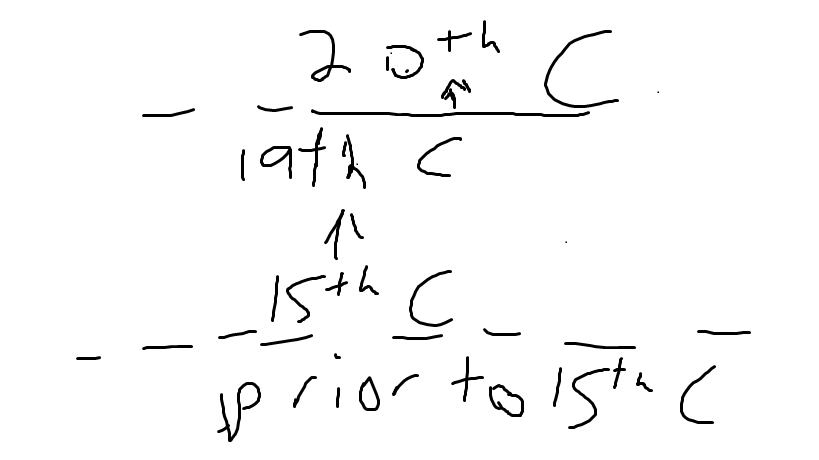 20th C
19th C
15th C
prior to 15th C